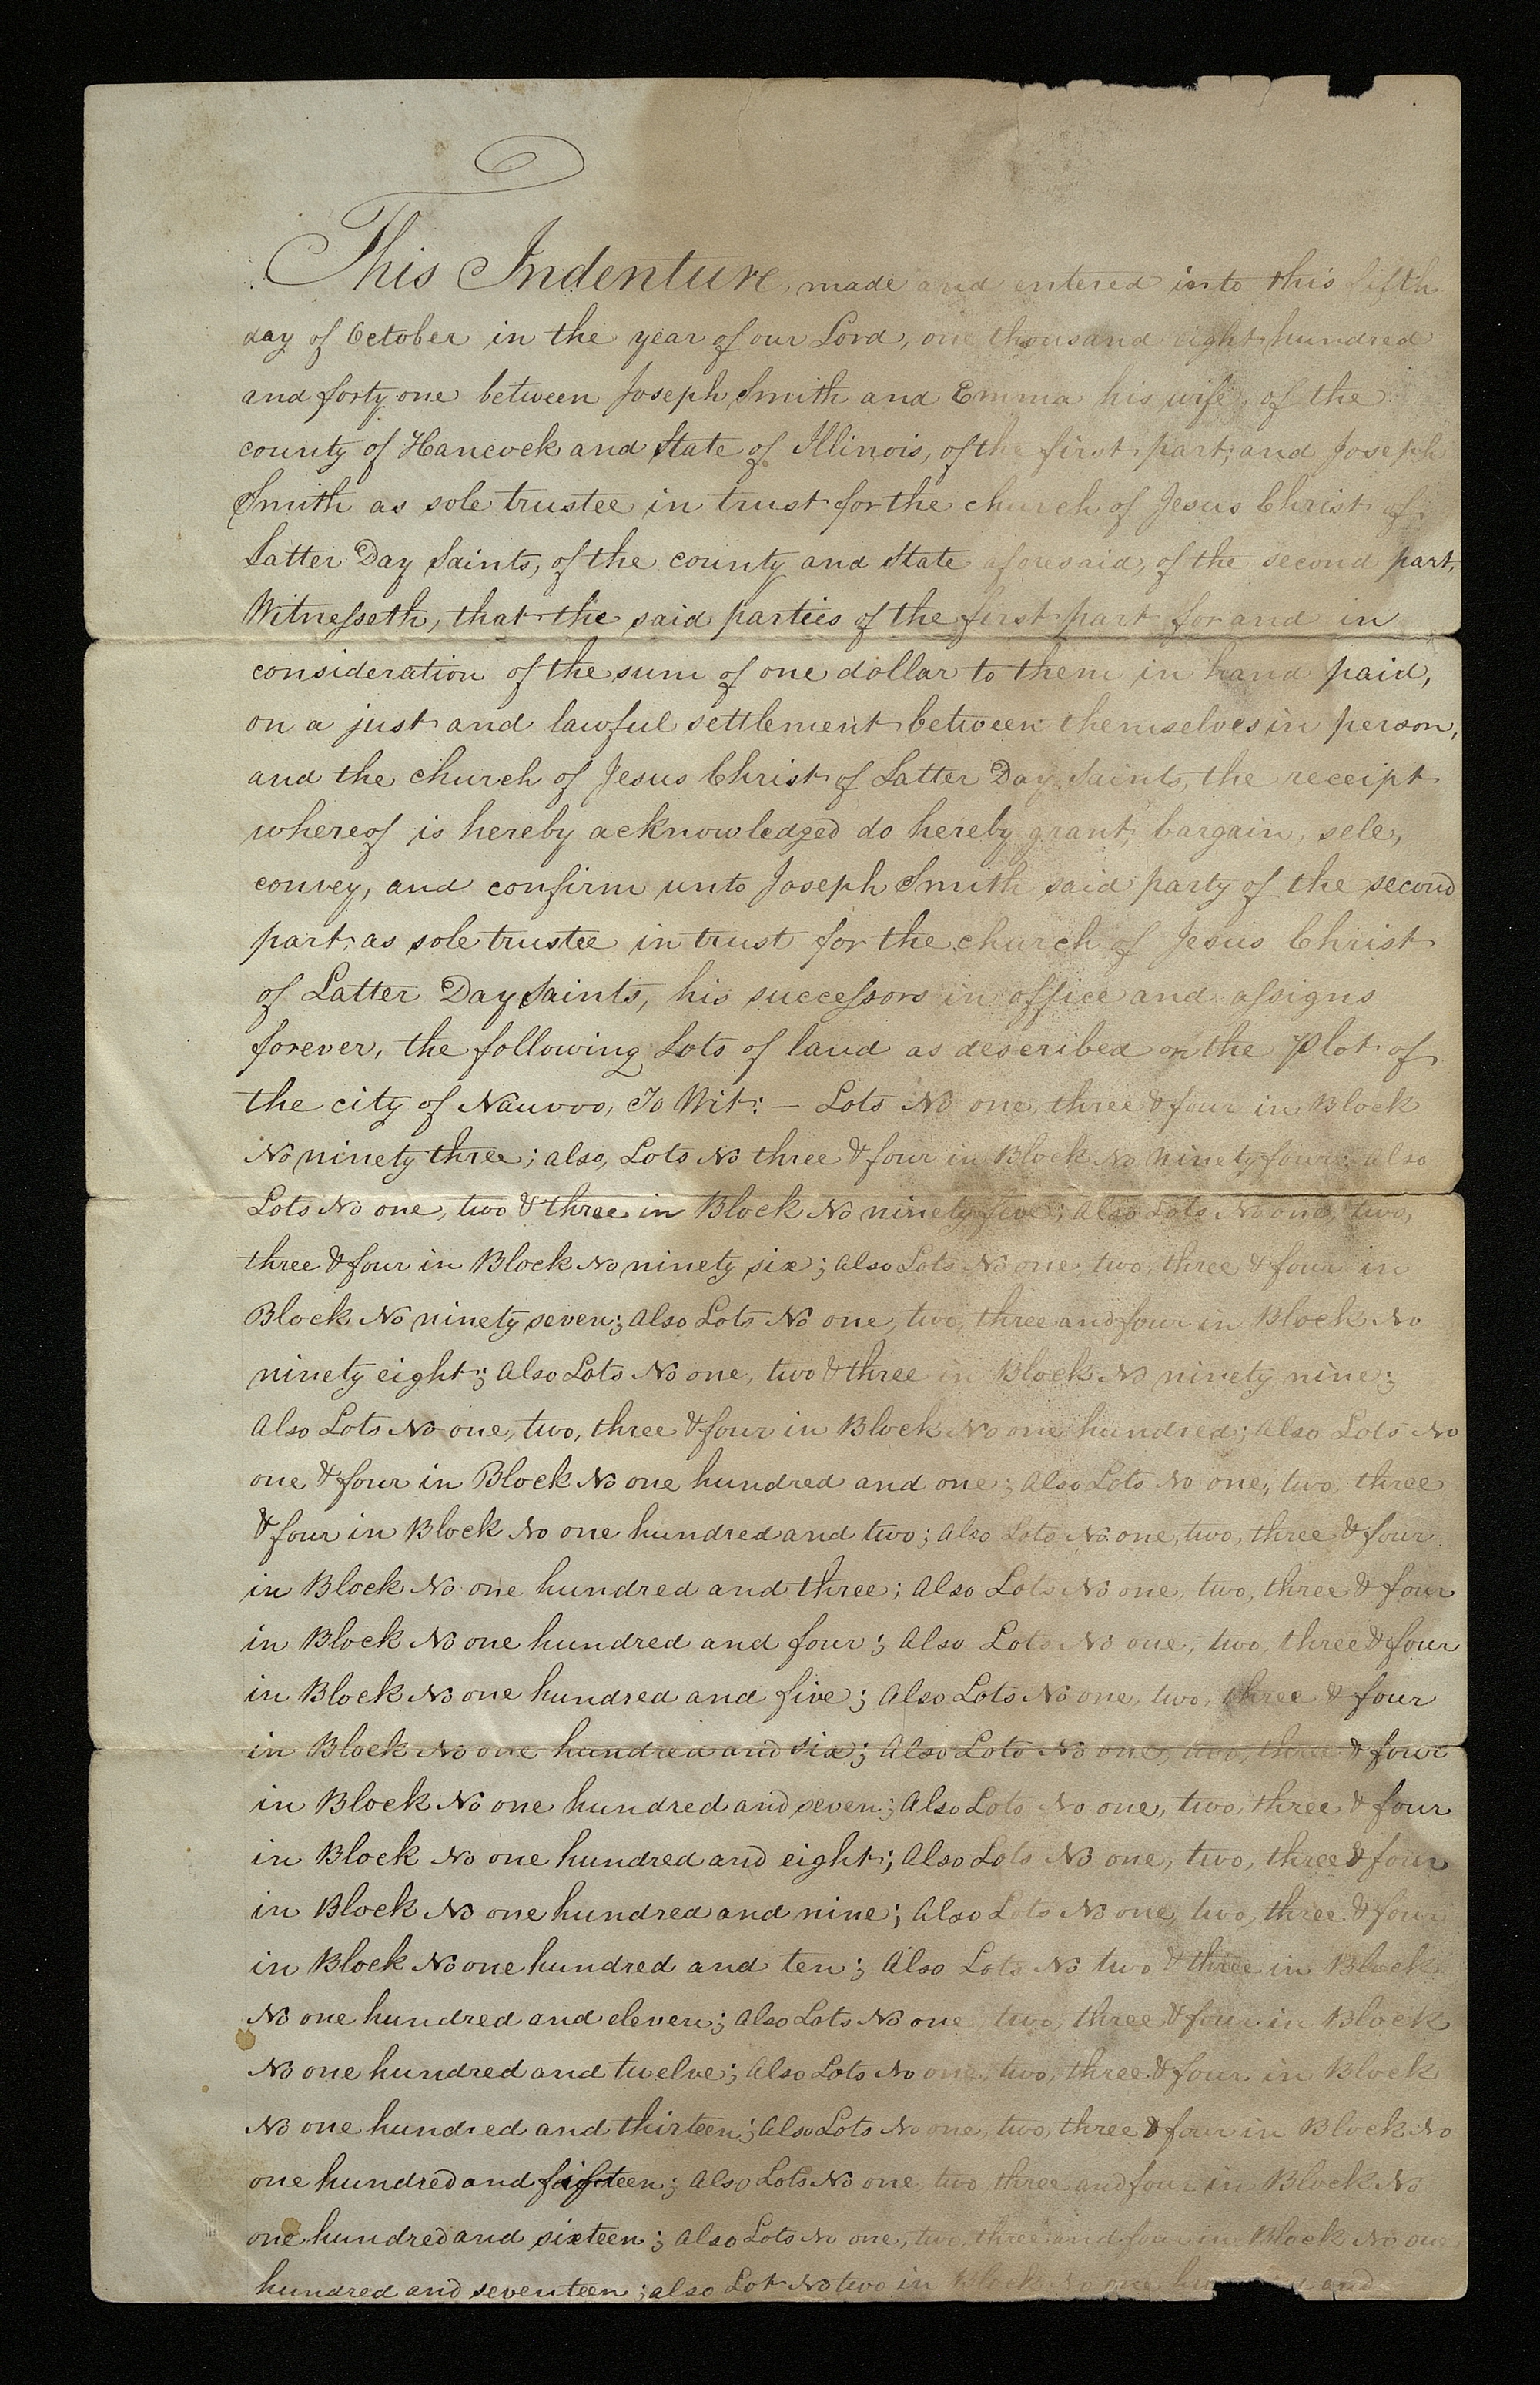 This Indenture, made and entered into this fifth
day of October in the year of our Lord, one thousand eight hundred
and forty one between Joseph Smith and Emma his wife, of the
county of Hancock and State of Illinois, of the first part, and Joseph
Smith as sole trustee in trust for the church of Jesus Christ of
Latter Day Saints, of the county and State aforesaid, of the second part,
Witnesseth, that the said parties of the first part for and in
consideration of the sum of one dollar to them in hand paid,
on a just and lawful settlement between themselves in person,
and the church of Jesus Christ of Latter Day Saints, the receipt
whereof is hereby acknowledged do hereby grant, bargain, sele,
convey, and confirm unto Joseph Smith said party of the second
part, as sole trustee in trust for the church of Jesus Christ
of Latter Day Saints, his successors in office and assigns
forever, the following Lots of land as described on the Plot of
the city of Nauvoo, To Wit: — Lots No one, three & four in Block
No ninety three; also, Lots No three & four in Block No Ninety four; also
Lots No one, two & three in Block No ninety five; Also Lots No one, two,
three & four in Block No ninety six; Also Lots No one, two, three & four in
Block No ninety seven; Also Lots No one, two, three and four in Block No
ninety eight; Also Lots No one, two & three in Block No ninety nine;
Also Lots No one, two, three & four in Block No one hundred; Also Lots No
one & four in Block No one hundred and one; Also Lots No one, two, three
& four in Block No one hundred and two; Also Lots No one, two, three & four
in Block No one hundred and three; Also Lots No one, two, three & four
in Block No one hundred and four; Also Lots No one, two, three & four
in Block No one hundred and five; Also Lots No one, two, three & four
in Block No one hundred and six; Also Lots No one, two, three & four
in Block No one hundred and seven; Also Lots No one, two, three & four
in Block No one hundred and eight; Also Lots No one, two, three & four
in Block No one hundred and nine; Also Lots No one, two, three & four
in Block No one hundred and ten; Also Lots No two & three in Block
No one hundred and eleven; Also Lots No one, two, three & four in Block
No one hundred and twelve; Also Lots No one, two, three & four in Block
No one hundred and thirteen; Also Lots No one, two, three & four in Block No
one hundred and fifteen; Also Lots No one, two, three and four in Block No
one hundred and sixteen; Also Lots No one, two, three and four in Block No one
hundred and seventeen; also Lot No two in Block No one and